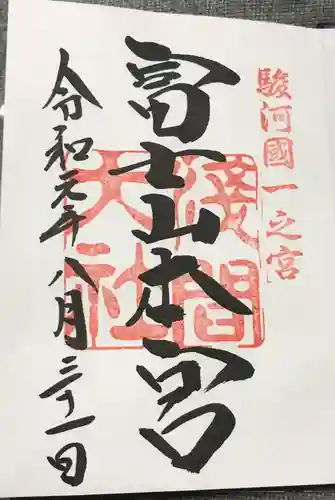 駿河國一之宮
富士山本宮
浅間
大社
令和元年八月三十一日